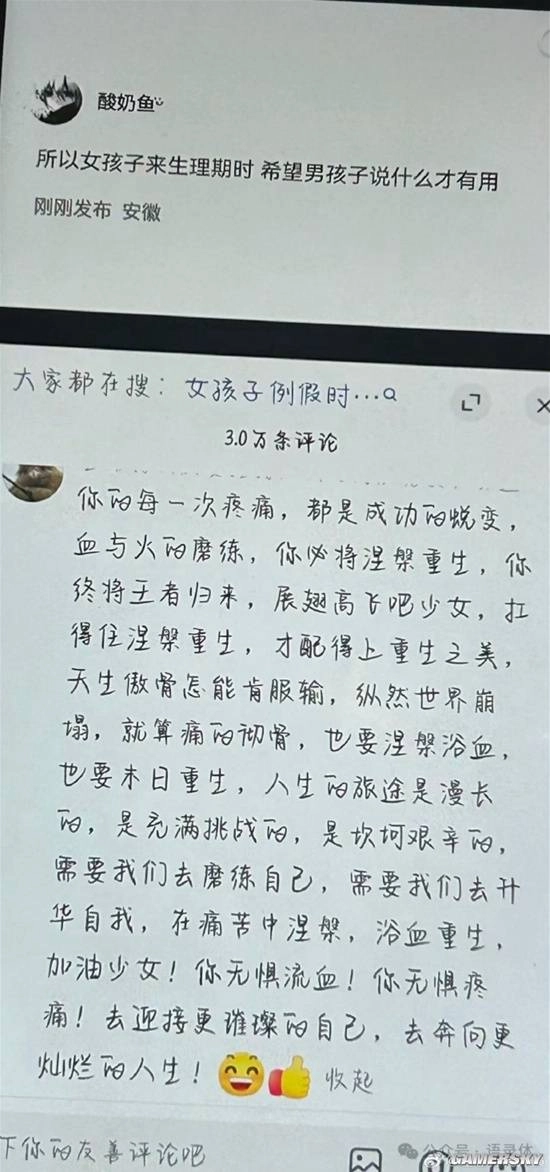 酸奶鱼
所以女孩子来生理期时 希望男孩子说什么才有用
刚刚发布 安徽
大家都在搜：女孩子例假时...
3.0万条评论
你的每一次疼痛，都是成功的蜕变，
血与火的磨练，你必将涅槃重生，你
终将王者归来，展翅高飞吧少女，扛
得住涅槃重生，才配得上重生之美，
天生傲骨怎能肯服输，纵然世界崩
塌，就算痛的彻骨，也要涅槃浴血，
也要末日重生，人生的旅途是漫长
的，是充满挑战的，是坎坷艰辛的，
需要我们去磨练自己，需要我们去升
华自我，在痛苦中涅槃，浴血重生，
加油少女！你无惧流血！你无惧疼
痛！去迎接更璀璨的自己，去奔向更
灿烂的人生！ 收起
下你的友善评论吧
公众号·语录体
GAMERSKY